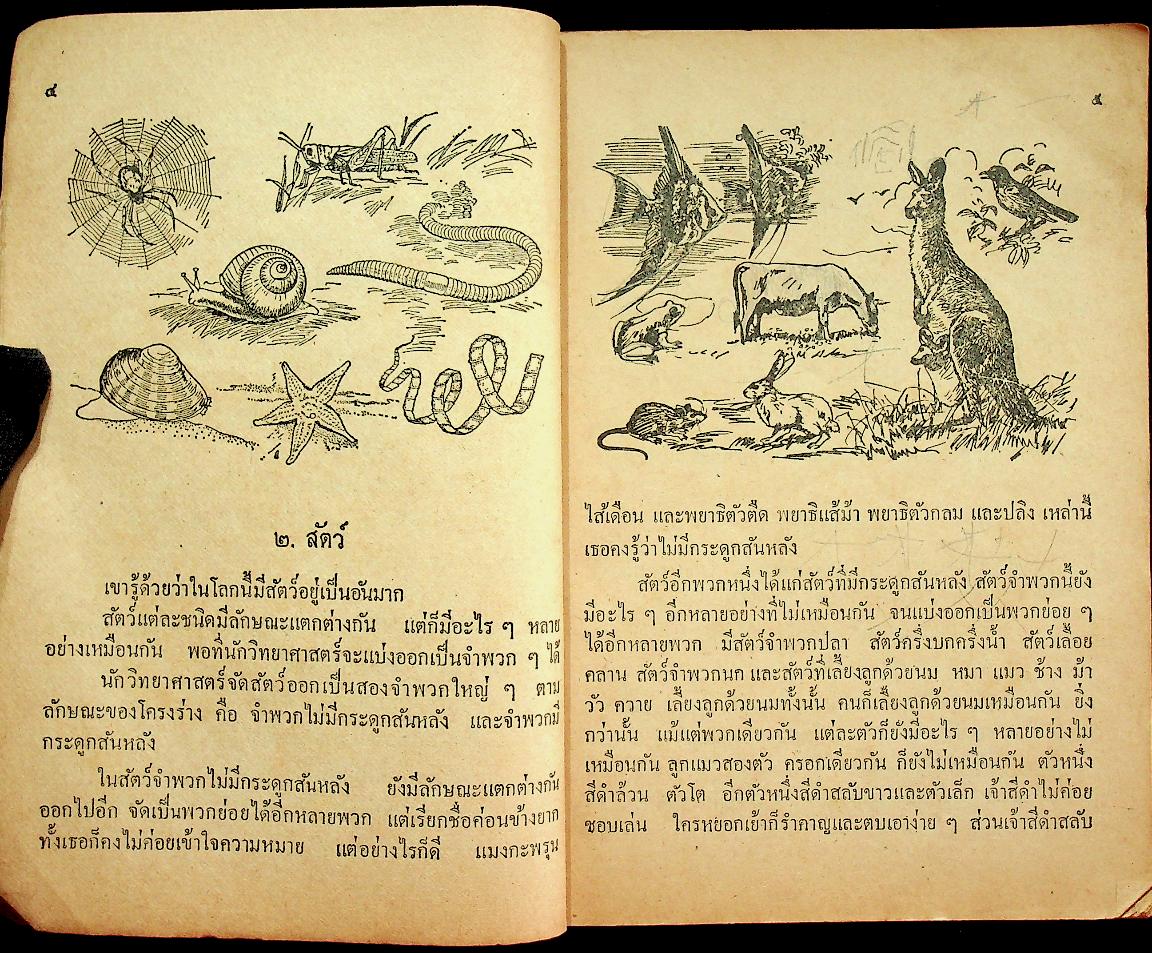 ๔
๒. สัตว์
เขารู้ด้วยว่าในโลกนี้มีสัตว์อยู่เป็นอันมาก
สัตว์แต่ละชนิดมีลักษณะแตกต่างกัน แต่ก็มีอะไร ๆ หลาย
อย่างเหมือนกัน พอที่นักวิทยาศาสตร์จะแบ่งออกเป็นจำพวก ๆ ได้
นักวิทยาศาสตร์จัดสัตว์ออกเป็นสองจำพวกใหญ่ ๆ ตาม
ลักษณะของโครงร่าง คือ จำพวกไม่มีกระดูกสันหลัง และจำพวกมี
กระดูกสันหลัง
ในสัตว์จำพวกไม่มีกระดูกสันหลัง ยังมีลักษณะแตกต่างกัน
ออกไปอีก จัดเป็นพวกย่อยได้อีกหลายพวก แต่เรียกชื่อค่อนข้างยาก
ทั้งเธอก็คงไม่ค่อยเข้าใจความหมาย แต่อย่างไรก็ดี แมงกะพรุน
๕
ไส้เดือน และพยาธิตัวตืด พยาธิแส้ม้า พยาธิตัวกลม และปลิง เหล่านี้
เธอคงรู้ว่าไม่มีกระดูกสันหลัง
สัตว์อีกพวกหนึ่งได้แก่สัตว์ที่มีกระดูกสันหลัง สัตว์จำพวกนี้ยัง
มีอะไร ๆ อีกหลายอย่างที่ไม่เหมือนกัน จนแบ่งออกเป็นพวกย่อย ๆ
ได้อีกหลายพวก มีสัตว์จำพวกปลา สัตว์ครึ่งบกครึ่งน้ำ สัตว์เลื้อย
คลาน สัตว์จำพวกนก และสัตว์ที่เลี้ยงลูกด้วยนม หมา แมว ช้าง ม้า
วัว ควาย เลี้ยงลูกด้วยนมทั้งนั้น คนก็เลี้ยงลูกด้วยนมเหมือนกัน ยิ่ง
กว่านั้น แม้แต่พวกเดียวกัน แต่ละตัวก็ยังมีอะไร ๆ หลายอย่างไม่
เหมือนกัน ลูกแมวสองตัว ครอกเดียวกัน ก็ยังไม่เหมือนกัน ตัวหนึ่ง
สีดำล้วน ตัวโต อีกตัวหนึ่งสีดำสลับขาวและตัวเล็ก เจ้าสีดำไม่ค่อย
ชอบเล่น ใครหยอกเย้าก็รำคาญและตบเอาง่าย ๆ ส่วนเจ้าสีดำสลับ